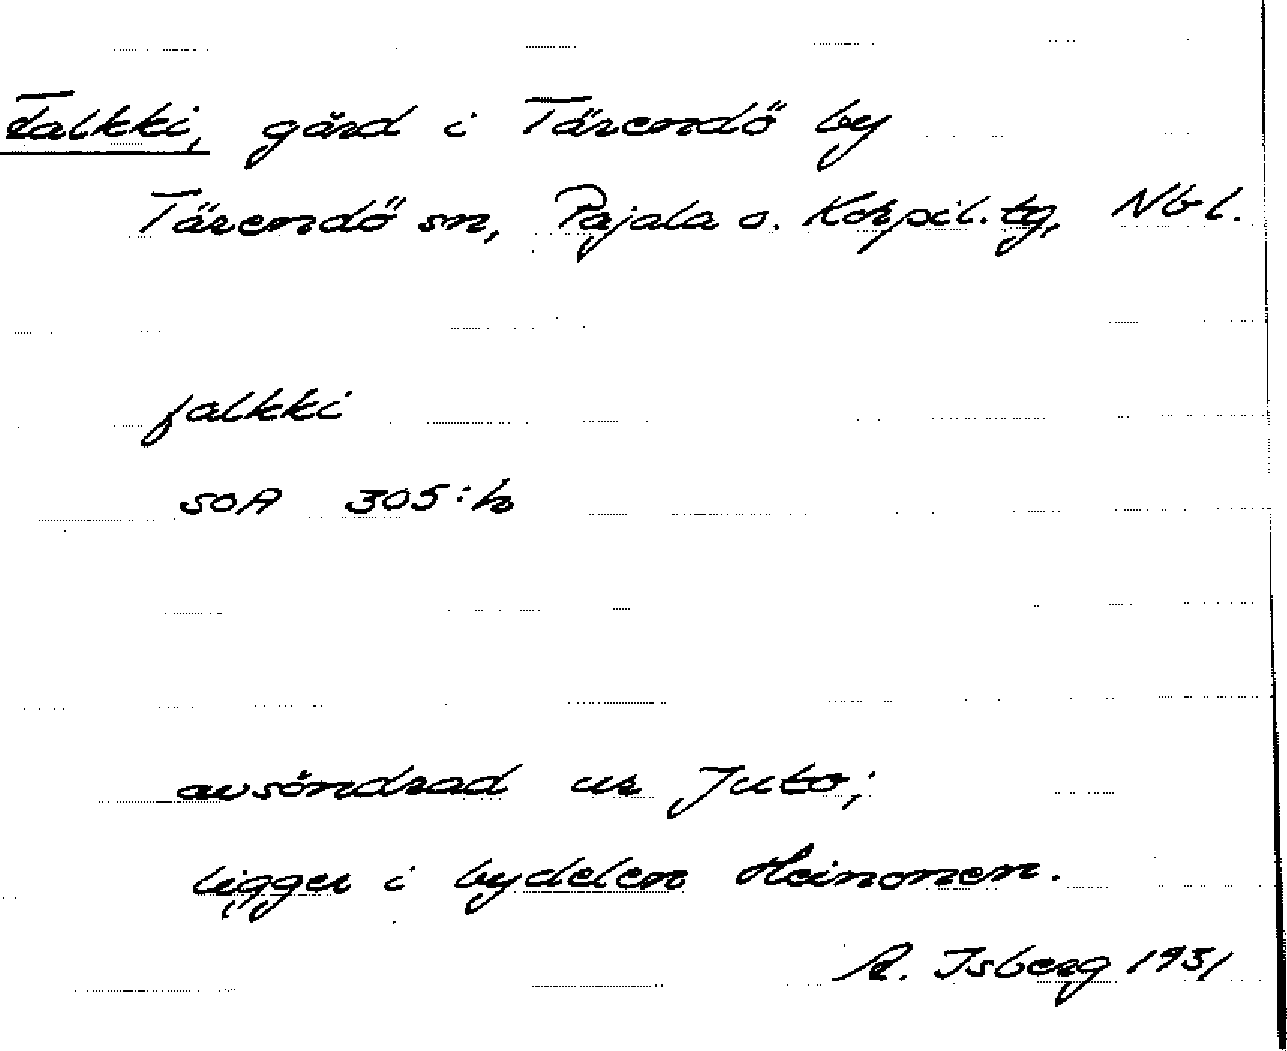 Falkki, gård i Tärendö by
Tärendö sn, Pajala o. Korpil. tg, Nbl.
falkki
SOA 305:b
avsöndrad ur Juto;
ligger i bydelen Heinonen.
A. Isberg 1931